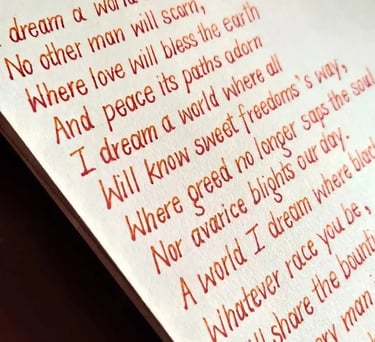 dream a world
No other man will scorn,
Where love will bless the earth
And peace its paths adorn
I dream a world where all
Will know sweet freedoms's way,
Where greed no longer saps the soul
Nor avarice blights our day.
A world I dream where black
Whatever race you be,
share the bounti
man